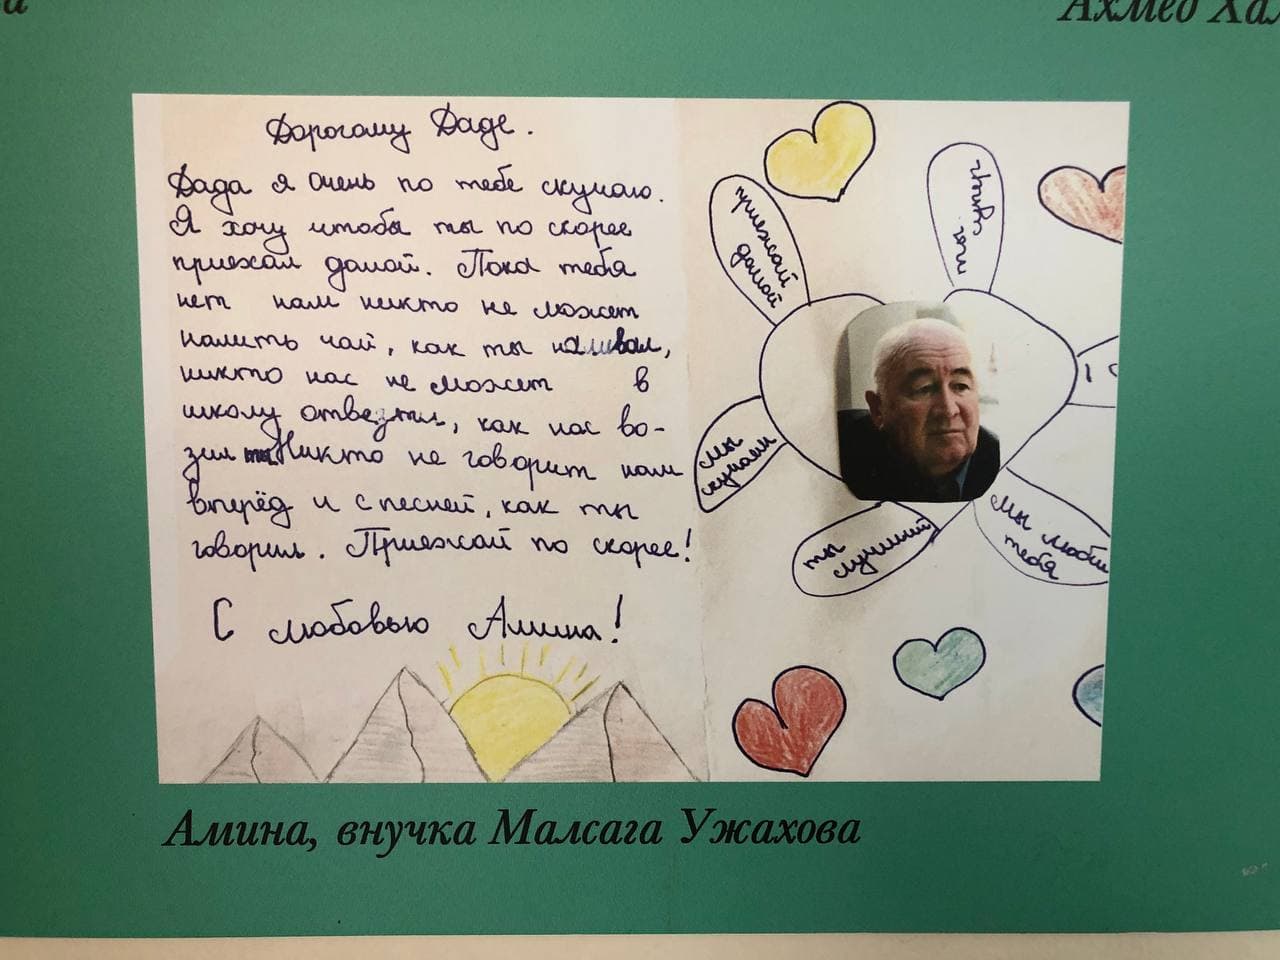 Ахмед
Дорогому Даде.
Дада я очень по тебе скучаю.
Я хочу чтобы ты по скорее
приехал домой. Пока тебя
нет нам никто не может
налить чай, как ты наливал,
никто нас не может в
школу отвезти, как нас во-
зил ты Никто не говорит нам
вперёд и с песней, как ты
говорил. Приезжай по скорее!
С любовью Амина!
приезжай
домой
ты
мы
скучаем
ты
лучший
мы люби
тебя
Амина, внучка Малсага Ужахова